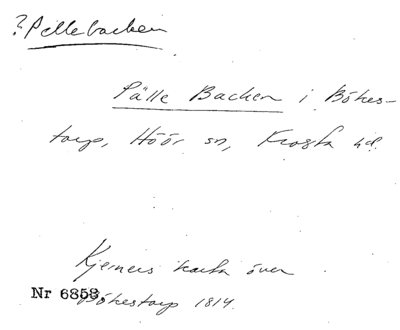 ? Pellebacken
Pälle Backen i Bökes-
torp, Höör sn, Frosta hd.
Kjerners karta över
Nr 6853 Bökestorp 1814.